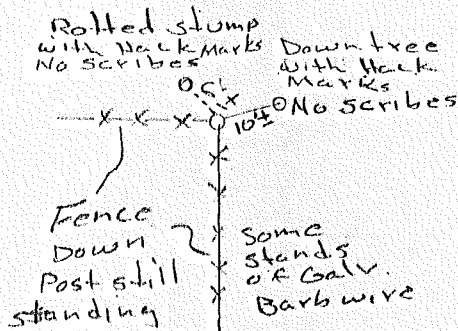 Rotted stump
with Hack Marks
No Scribes
Down tree
with Hack
Marks
No Scribes
5'±
10'±
Fence
Down
Post still
standing
Some
stands
of Galv.
Barb wire